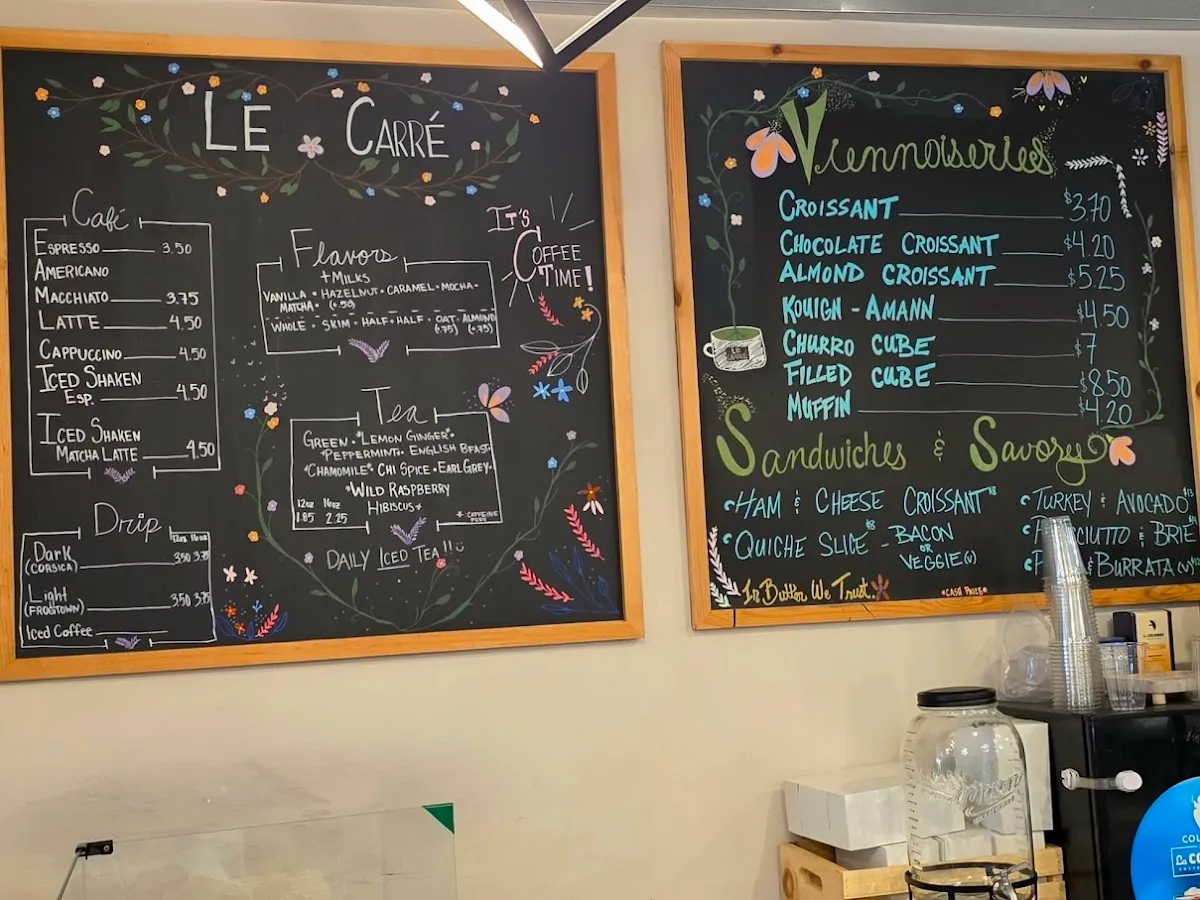 LE CARRÉ
Café
ESPRESSO 3.50
AMERICANO
MACCHIATO 3.75
LATTE 4.50
CAPPUCCINO 4.50
ICED SHAKEN
ESP. 4.50
ICED SHAKEN
MATCHA LATTE 4.50
Drip
12oz 16oz
Dark 3.50 3.75
(CORSICA)
Light
(FROGTOWN) 3.50 3.75
Iced Coffee
Flavors
+ MILKS
VANILLA • HAZELNUT • CARAMEL • MOCHA •
MATCHA • (+.50)
WHOLE • SKIM • HALF+HALF • OAT • ALMOND
(+.75) (+.75)
IT'S
COFFEE
TIME!
Tea
GREEN • *LEMON GINGER* •
*PEPPERMINT • ENGLISH BFAST
*CHAMOMILE* • CHI SPICE • EARL GREY •
*WILD RASPBERRY
HIBISCUS*
12oz 16oz
1.85 2.25
*: CAFFEINE
FREE
DAILY ICED TEA!!
Viennoiseries
CROISSANT $3.70
CHOCOLATE CROISSANT $4.20
ALMOND CROISSANT $5.25
KOUIGN-AMANN $4.50
CHURRO CUBE $7
FILLED CUBE $8.50
MUFFIN $4.20
LE CARRÉ
Sandwiches & Savory
HAM & CHEESE CROISSANT $8
QUICHE SLICE $8 - BACON
OR
VEGGIE (V)
TURKEY & AVOCADO
& BRIE
& BURRATA (V)
In Butter We Trust
*CASH PRICE*
Mason
LA COLOMBE
COL
La CO